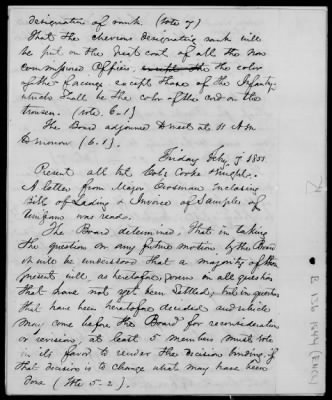 designation of rank. (Vote 7)
That the chevrons designating rank will
be put on the great coat of all the non
commissioned Officers, except the the color
of the facings except those of the Infantry
which shall be the color of the cord on the
trousers. (vote. 6.1)
The Board adjourned to meet at 11 A.M
tomorrow (6.1).
Friday Feby 7 1851.
Present all but Cols Cooke &
A letter from Major Crosman inclosing
Bill of Lading & Invoice of Samples of
Uniforms was read.
The Board determined, That in taking
the question on any future motion by the Board
it will be understood that a majority of those
present will, as heretofore, govern in all questions
that have not yet been settled; but in questions
that have been heretofore decided and which
may come before the Board for reconsideration
or revision, at least 5 members must vote
in its favor to render the decision binding, if
that decision is to change what may have been
done (Vote 5-2).